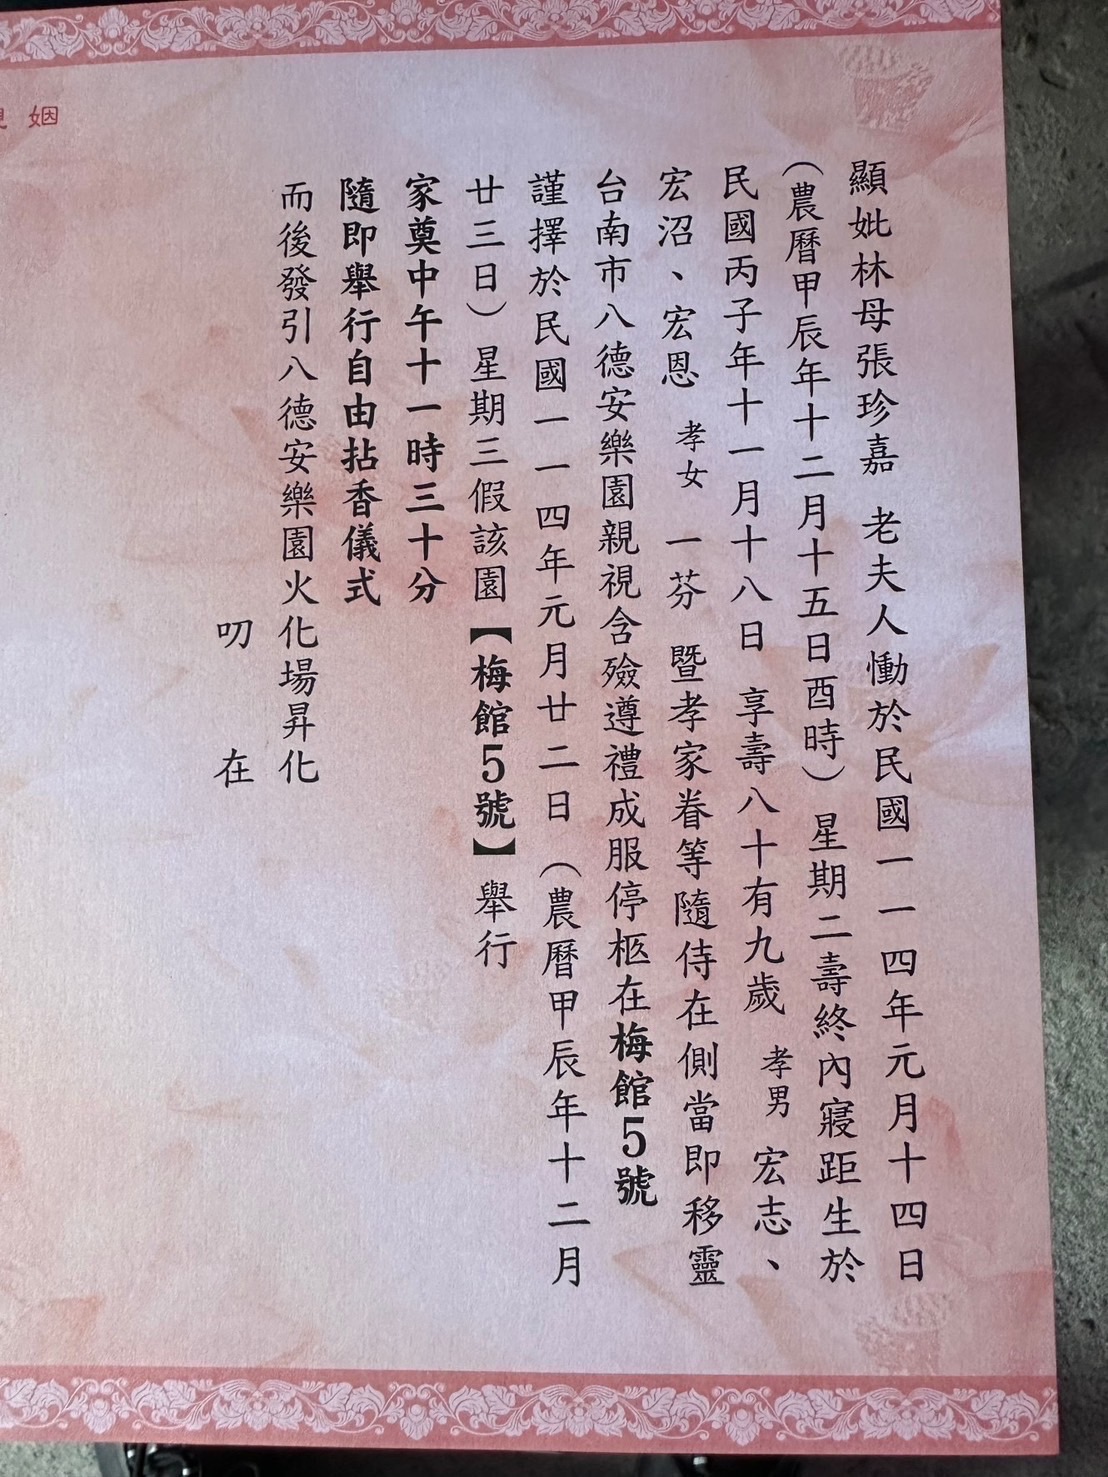 顯妣林母張珍嘉 老夫人慟於民國一一四年元月十四日
(農曆甲辰年十二月十五日酉時)星期二壽終內寢距生於
民國丙子年十一月十八日 享壽八十有九歲 孝男 宏志、
宏沼、宏恩 孝女 一芬 暨孝家眷等隨侍在側當即移靈
台南市八德安樂園親視含殮遵禮成服停柩在梅館5號
謹擇於民國一一四年元月廿二日(農曆甲辰年十二月
廿三日)星期三假該園【梅館5號】舉行
家奠中午十一時三十分
隨即舉行自由拈香儀式
而後發引八德安樂園火化場昇化
叨 在
姻